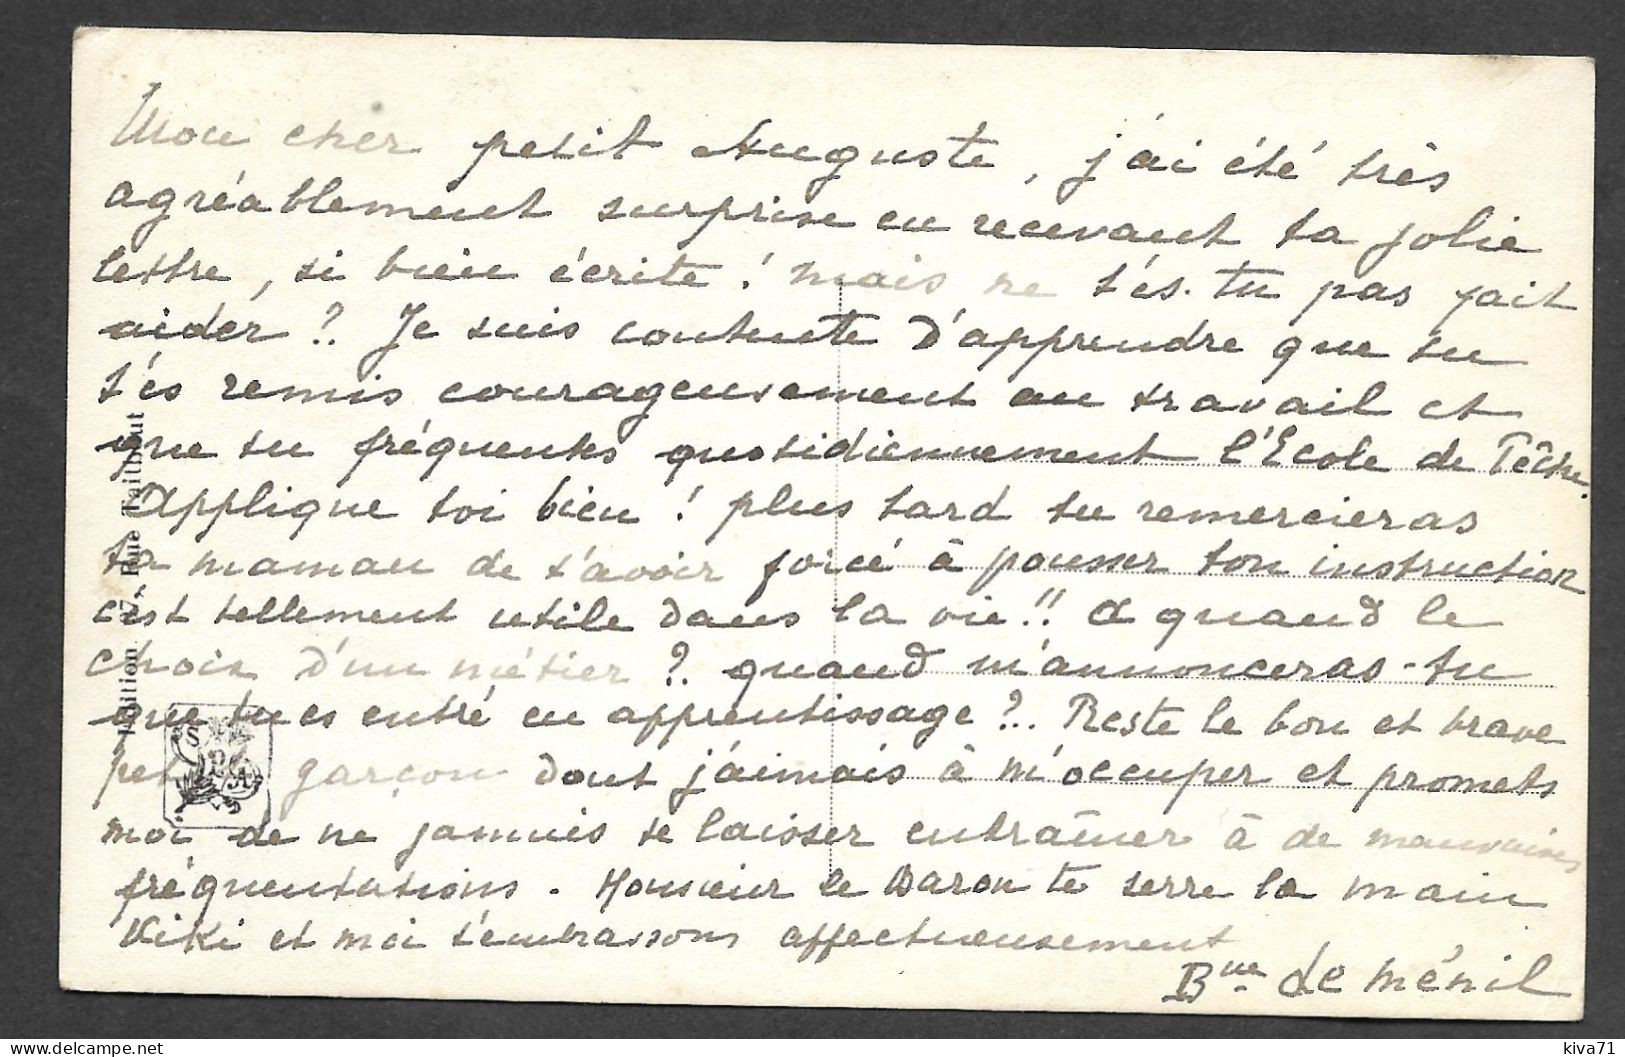 Mon cher petit Auguste, j'ai été très
agréablement surprise en recevant ta jolie
lettre, si bien écrite ! mais ne t'és-tu pas fait
aider ?. Je suis contente d'apprendre que tu
t'és remis courageusement au travail et
que tu fréquentes quotidiennement l'Ecole de Pêche.
Applique toi bien ! plus tard tu remercieras
ta maman de t'avoir forcé à pousser ton instruction
c'est tellement utile dans la vie !! à quand le
choix d'un métier ?. quand m'annonceras-tu
que tu es entré en apprentissage ?.. Reste le bon et brave
garçon dont j'aimais à m'occuper et promets
moi de ne jamais te laisser entraîner à de mauvaises
fréquentations. Monsieur le Baron te serre la main
Kiki et moi t'embrassons affectueusement
Bne de Ménil
Edition 7, Rue Faithbout
S P A
delcampe.net
kiva71